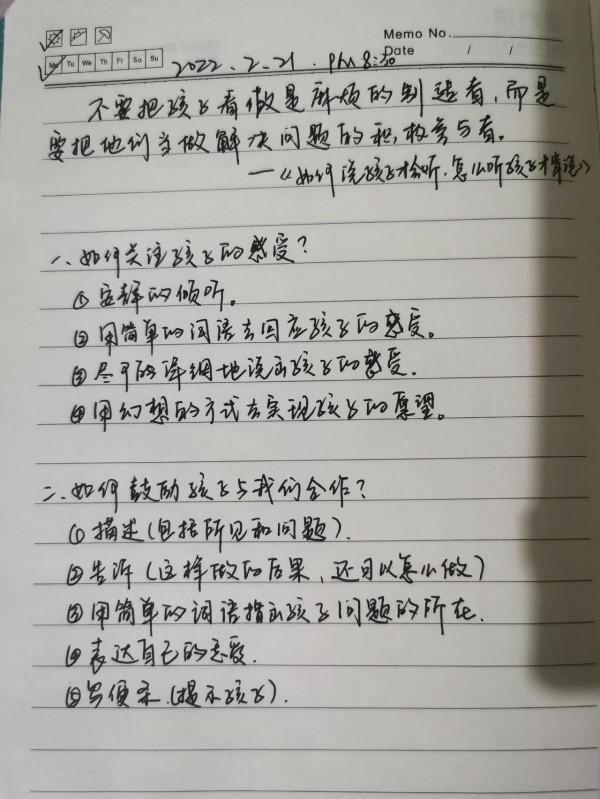 Memo No.
Mo Tu We Th Fr Sa Su
Date / /
2022.2.21. PM 8:30
不要把孩子看做是麻烦的制造者,而是
要把他们当做解决问题的积极参与者。
—《如何说孩子才会听.怎么听孩子才肯说》
一、如何关注孩子的感受?
①安静的倾听。
②用简单的词语去回应孩子的感受。
③尽可能详细地说出孩子的感受.
④用幻想的方式去实现孩子的愿望。
二.如何鼓励孩子与我们合作?
①描述(包括所见和问题).
②告诉(这样做的后果,还可以怎么做)
③用简单的词语指出孩子问题的所在.
④表达自己的感受.
⑤写便条.(提示孩子).